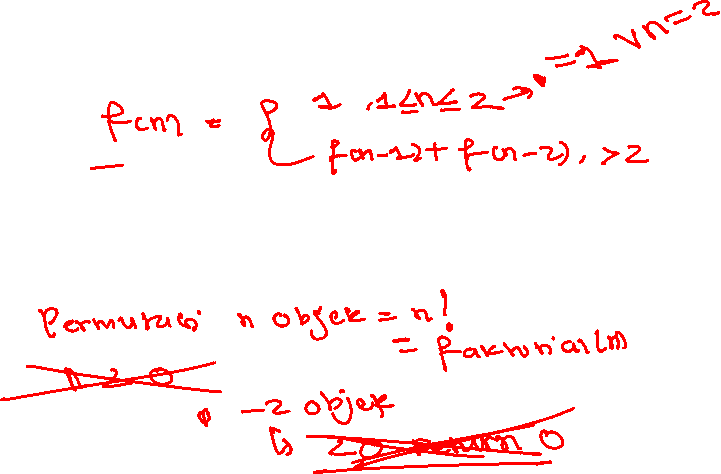 =1 ∨ n=2
f(n) = { 1 , 1≤n≤2 →
f(n-1)+f(n-2), >2
Permutasi n objek = n!
= faktorial(n)
-2 objek